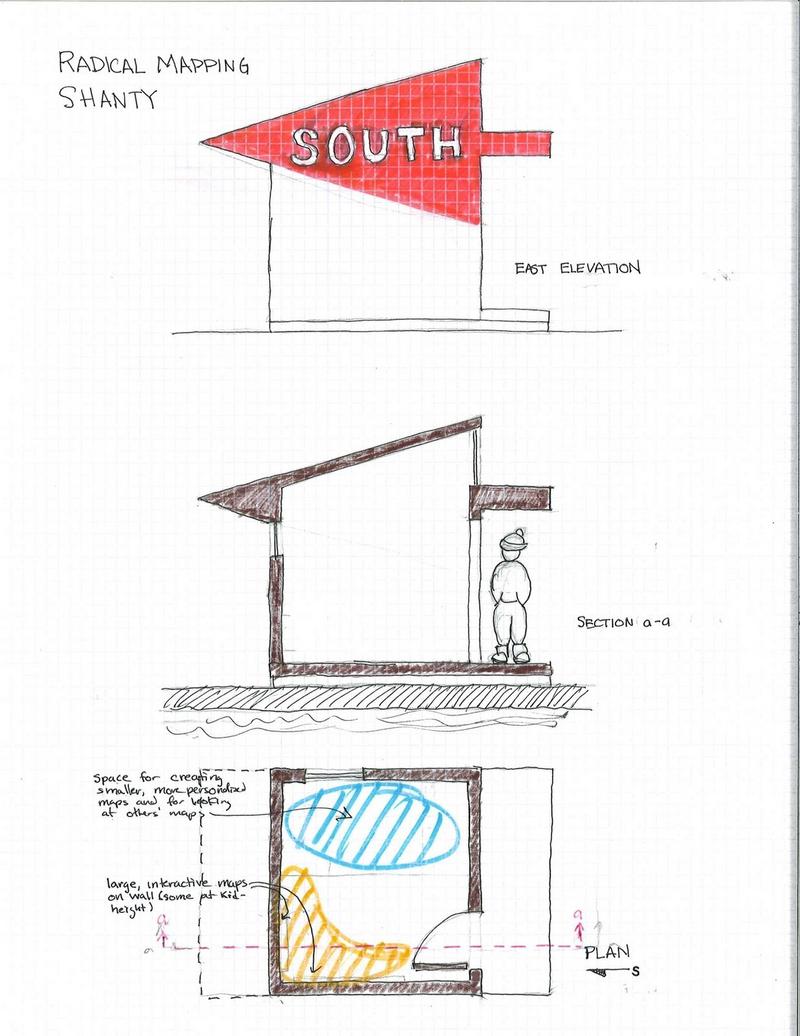 RADICAL MAPPING
SHANTY
SOUTH
EAST ELEVATION
SECTION a-a
space for creating
smaller, more personalized
maps and for looking
at others' maps
large, interactive maps
on wall (some at kid-
height)
a
a
a
PLAN
S